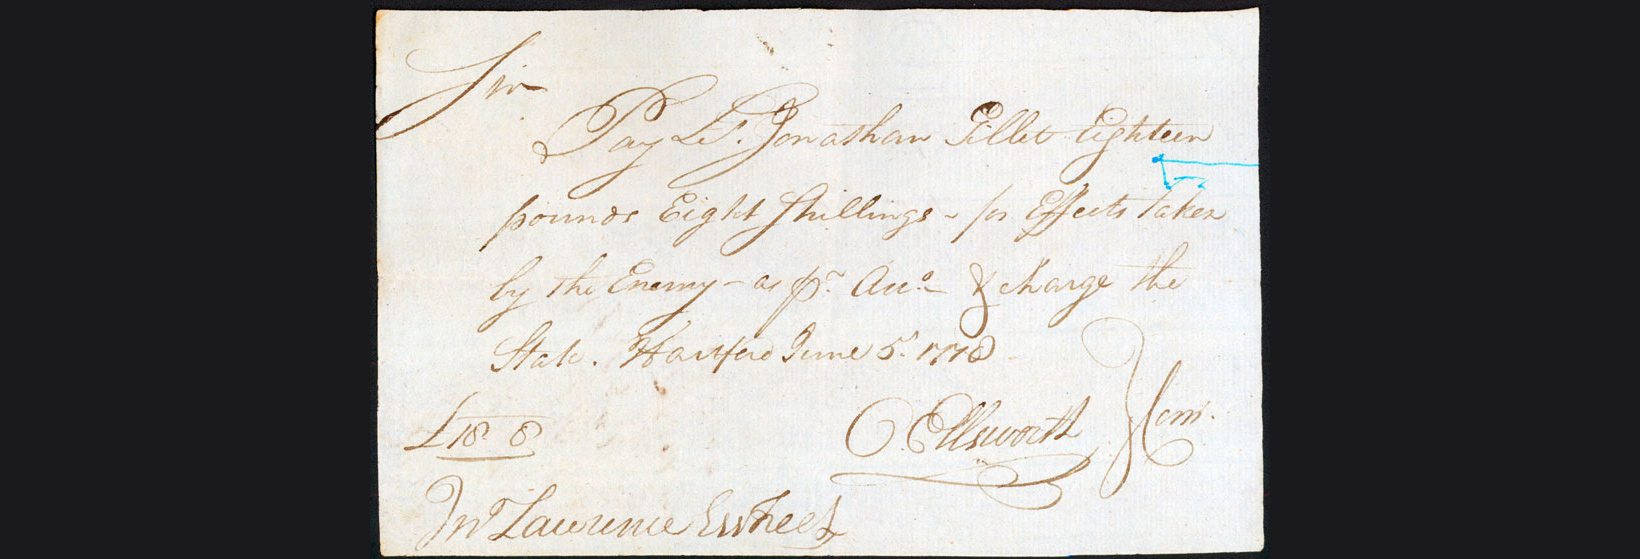 Sir
Pay Lt. Jonathan Gillet Eighteen
pounds Eight Shillings - for Effects taken
by the Enemy - as pr. Acco. - & charge the
State. Hartford June 5. 1778
£18 8
O. Ellsworth } Com.
Jno Lawrence Esqr